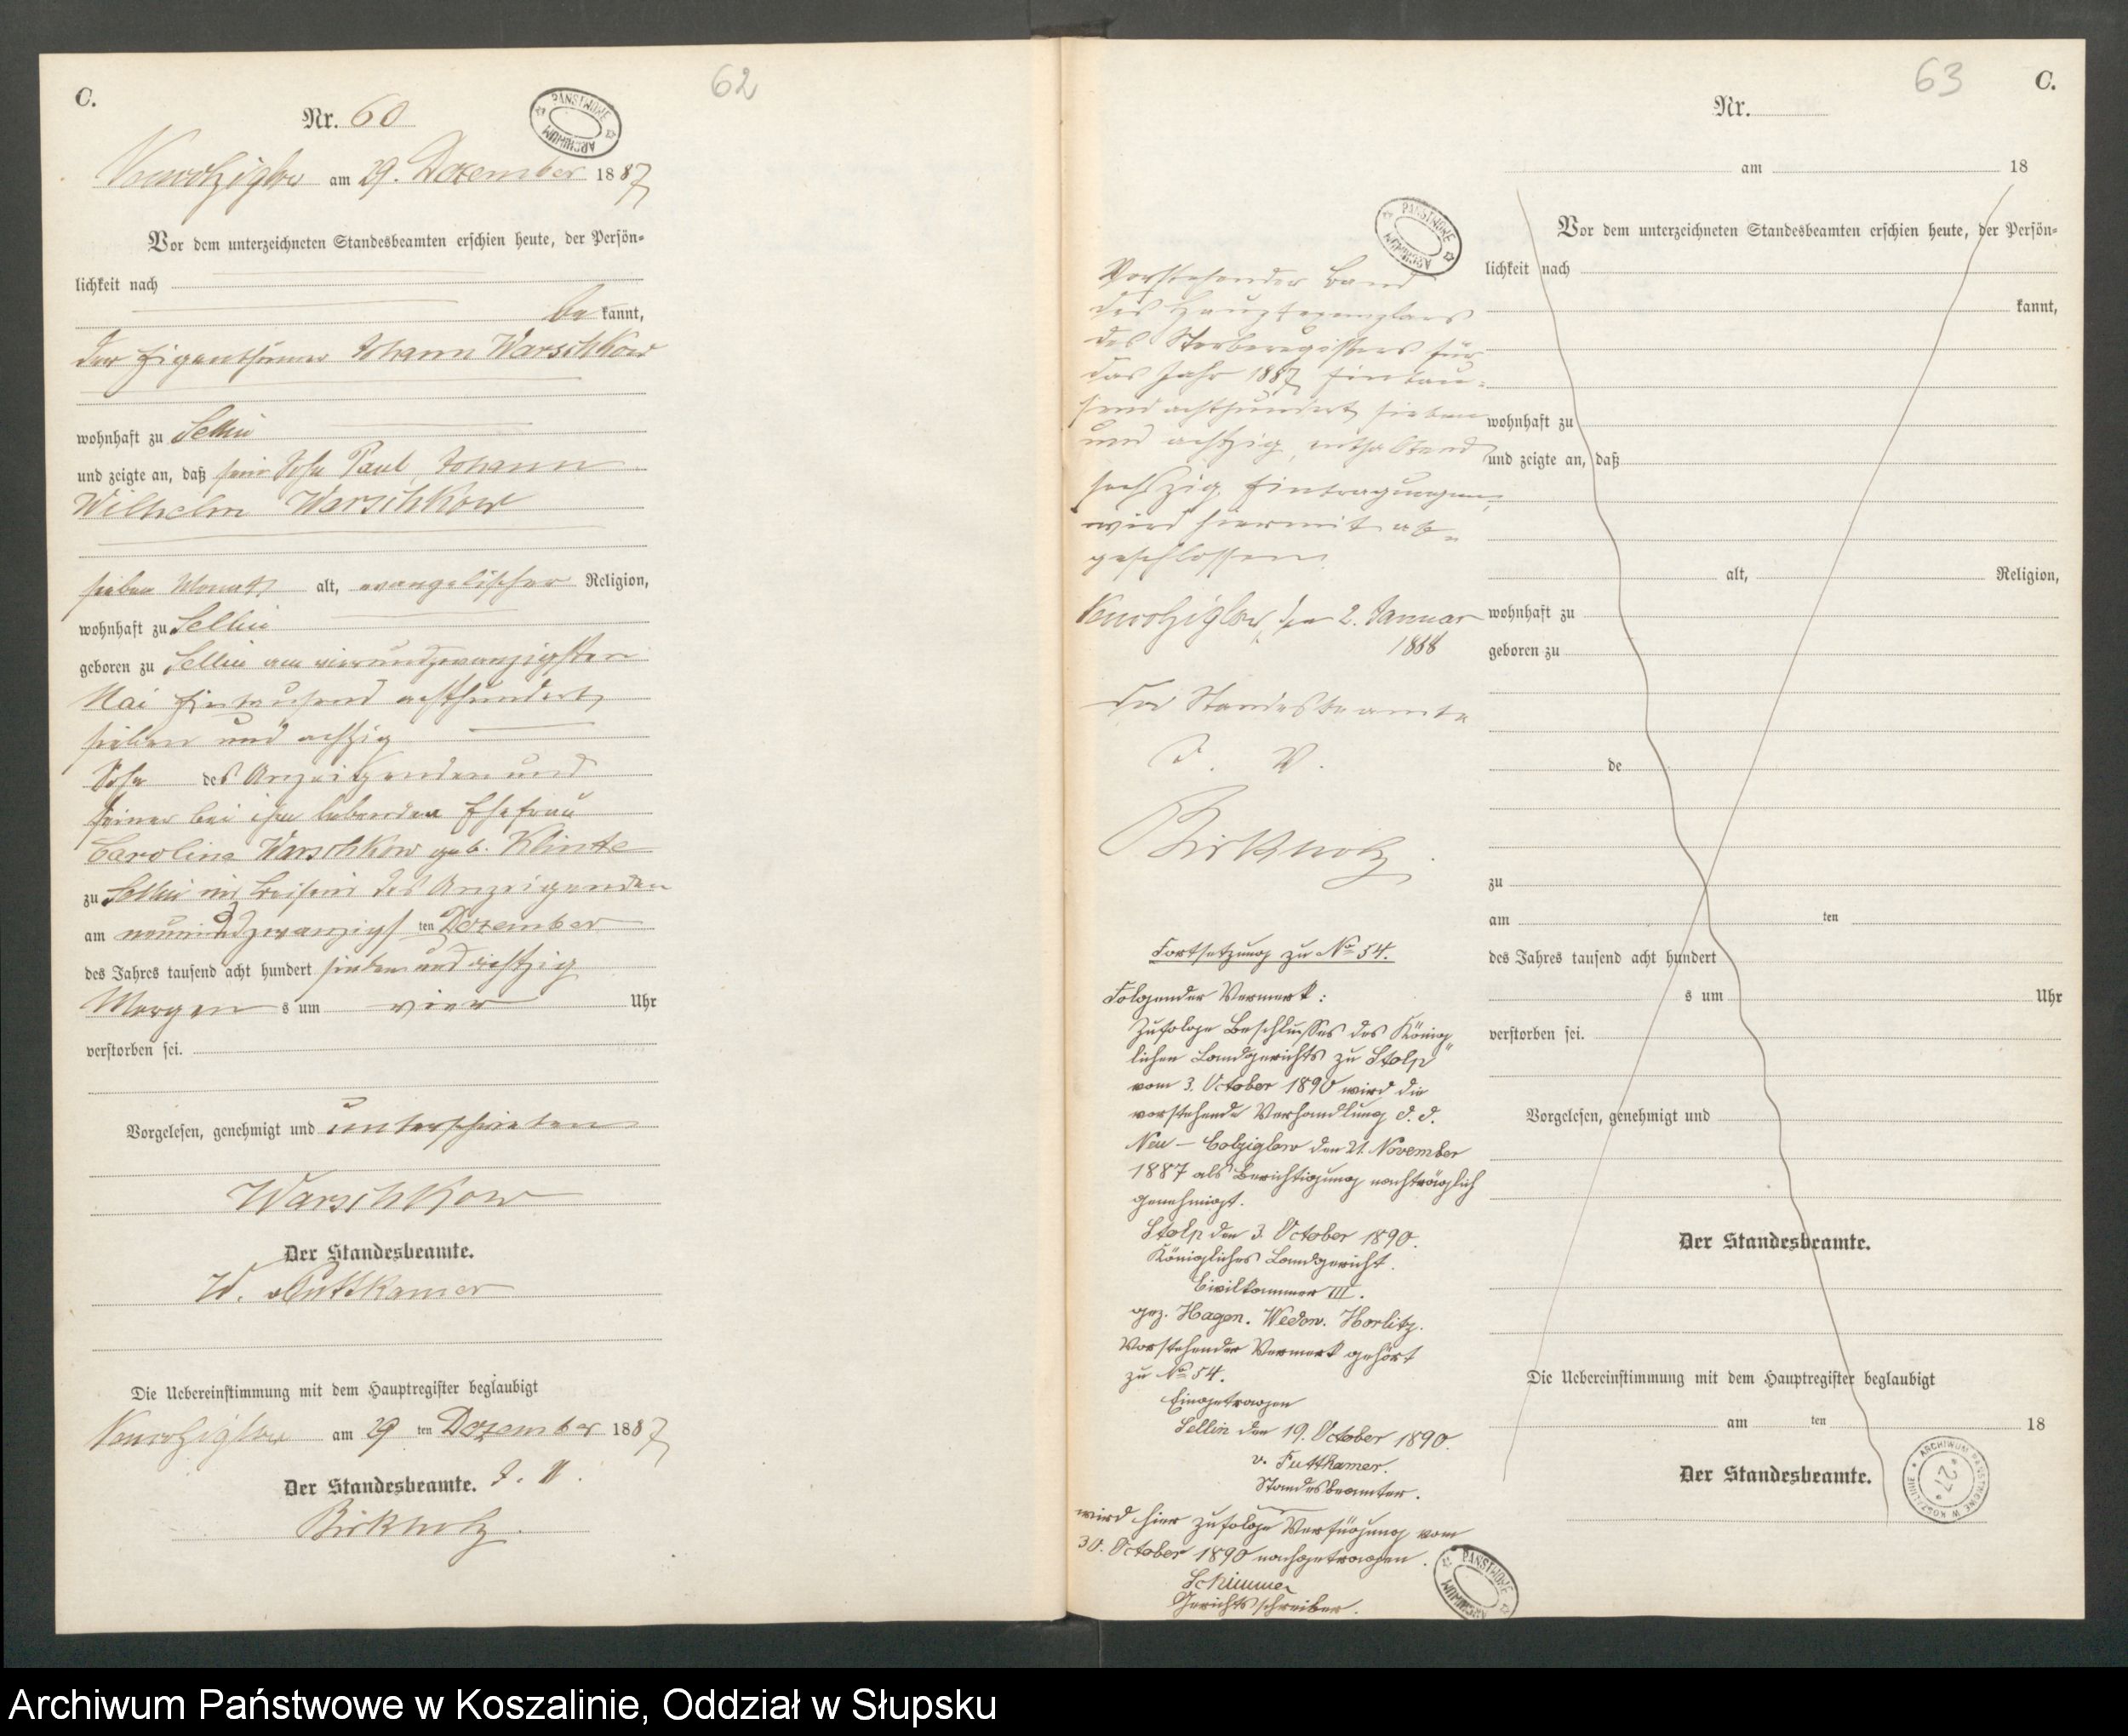 C.
62
Nr. 60
PAŃSTWOWE ARCHIWUM
Neucolziglow am 29. Dezember 1887
Vor dem unterzeichneten Standesbeamten erschien heute, der Persön-
lichkeit nach
be kannt,
der Eigenthümer Johann Warschkow
wohnhaft zu Sellin
und zeigte an, daß sein Sohn Paul Johann
Wilhelm Warschkow
sieben Monat alt, evangelischer Religion,
wohnhaft zu Sellin
geboren zu Sellin am vierundzwanzigsten
Mai Eintausend achthundert
sieben und achtzig
Sohn des Anzeigenden und
seiner bei ihm lebenden Ehefrau
Caroline Warschkow geb. Klinte
zu Sellin im Beisein des Anzeigenden
am neunundzwanzigsten Dezember
des Jahres tausend acht hundert sieben und achtzig
Morgens um vier Uhr
verstorben sei.
Vorgelesen, genehmigt und unterschrieben
Warschkow
Der Standesbeamte.
W. v Puttkamer
Die Uebereinstimmung mit dem Hauptregister beglaubigt
Neucolziglow am 29 ten Dezember 1887
Der Standesbeamte. J. V.
Birkholz.
PAŃSTWOWE ARCHIWUM
Vorstehender Band
des Hauptexemplars
des Sterberegisters für
das Jahr 1887 Eintau-
send achthundert sieben
und achtzig, enthaltend
sechszig Eintragungen,
wird hiermit ab-
geschlossen.
Neucolziglow, den 2. Januar
1888
Der Standesbeamte
J. V.
Birkholz.
Fortsetzung zu No 54.
Folgender Vermerk:
Zufolge Beschlusses des König-
lichen Landgerichts zu Stolp
vom 3. October 1890 wird die
vorstehende Verhandlung d. d.
Neu-Colziglow den 21. November
1887 als Berichtigung nachträglich
genehmigt.
Stolp den 3. October 1890.
Königliches Landgericht.
Civilkammer III.
gez. Hagen. Wedow. Horlitz.
Vorstehender Vermerk gehört
zu No 54.
Eingetragen
Sellin den 19. October 1890.
v. Puttkamer.
Standesbeamter.
wird hier zufolge Verfügung vom
30. October 1890 nachgetragen.
Schimmer
Gerichtsschreiber.
PAŃSTWOWE ARCHIWUM
63
C.
Nr.
am 18
Vor dem unterzeichneten Standesbeamten erschien heute, der Persön-
lichkeit nach
kannt,
wohnhaft zu
und zeigte an, daß
alt, Religion,
wohnhaft zu
geboren zu
de
zu
am ten
des Jahres tausend acht hundert
s um Uhr
verstorben sei.
Vorgelesen, genehmigt und
Der Standesbeamte.
Die Uebereinstimmung mit dem Hauptregister beglaubigt
am ten 18
Der Standesbeamte.
ARCHIWUM PAŃSTWOWE W KOSZALINIE
27
Archiwum Państwowe w Koszalinie, Oddział w Słupsku